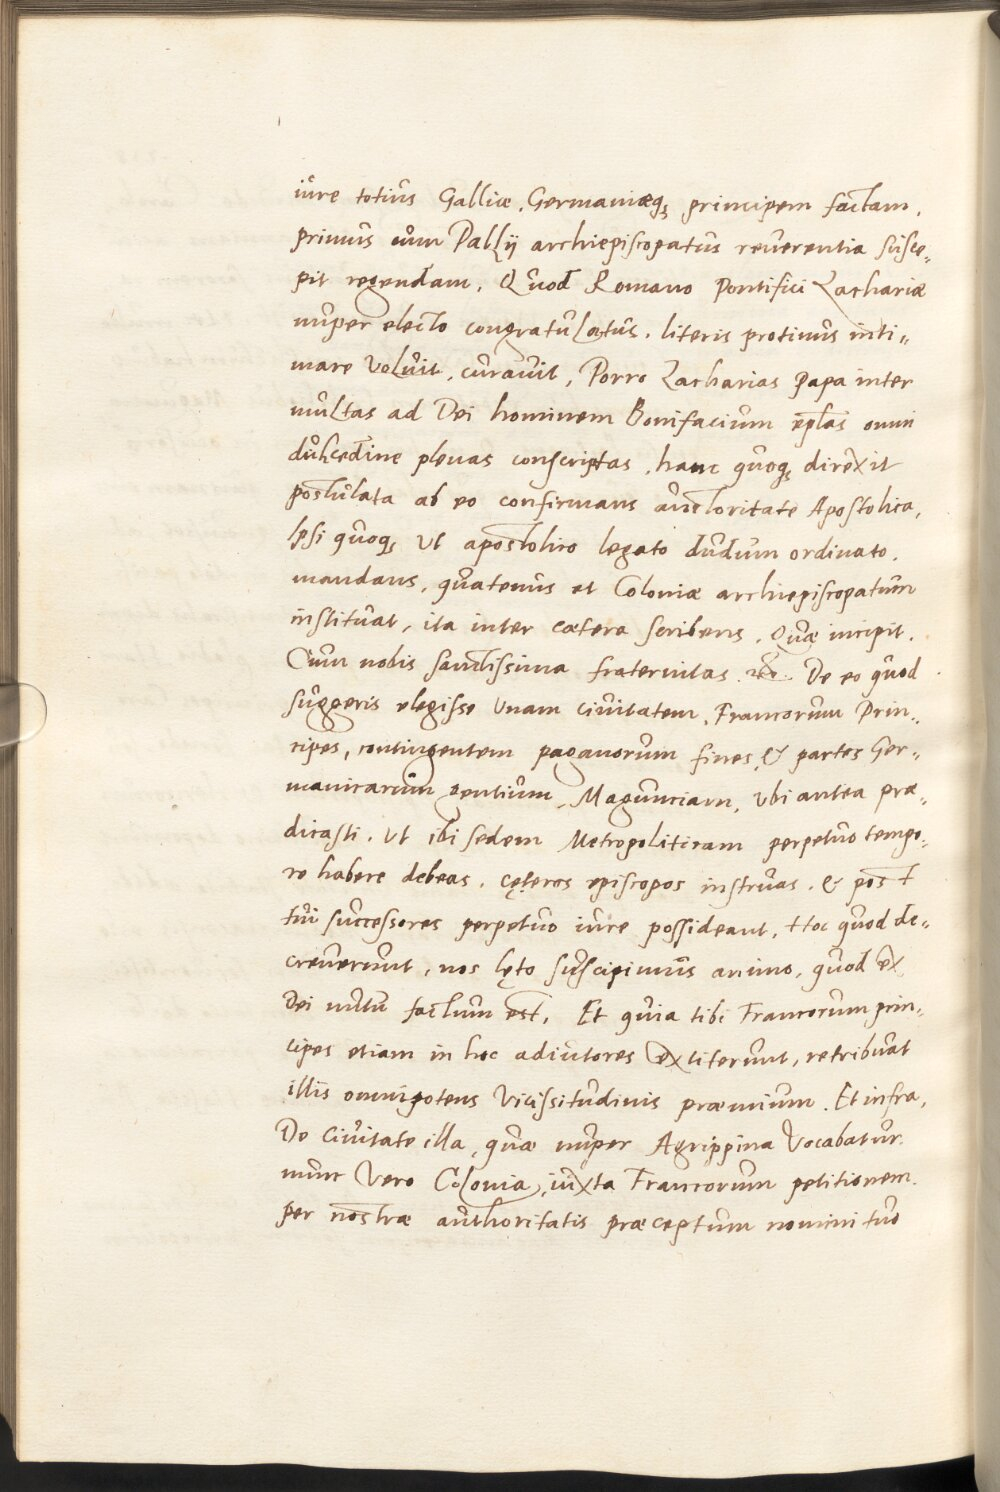 iure totius Galliæ, Germaniæq; principem factam,
primus cum Pallij archiepiscopatus reuerentia susce„
pit regendam. Quod Romano Pontifici Zachariæ
nuper electo congratulatus, literis protinus inti„
mare voluit, curauit, Porro Zacharias Papa inter
multas ad Dei hominem Bonifacium eplas omni
dulcedine plenas conscriptas, hanc quoq; direxit
postulata ab eo confirmans auctoritate Apostolica,
Ipsi quoq; vt apostolico legato dudum ordinato.
mandans, quatenus et Coloniæ archiepiscopatum
instituat, ita inter cætera scribens. Quæ incipit.
Cum nobis sanctissima fraternitas. De eo quod
suggeris elegisse vnam ciuitatem, Francorum Prin„
cipes, contingentem paganorum fines, & partes Ger„
manicarum gentium, Magunciam, vbi antea præ„
dicasti. vt ibi sedem Metropoliticam perpetuo tempo„
re habere debeas. cęteros episcopos instruas. & post
tui successores perpetuo iure possideant, Hoc quod de„
creuerunt, nos lęto suscipimus animo, quod ex
Dei nutu factum est. Et quia tibi Francorum prin„
cipes etiam in hoc adiutores extiterunt, retribuat
illis omnipotens vicissitudinis præmium. Et infra,
De Ciuitate illa, quæ nuper Agrippina vocabatur.
nunc vero Colonia, iuxta Francorum petitionem.
per nostræ authoritatis præceptum nomini tuo